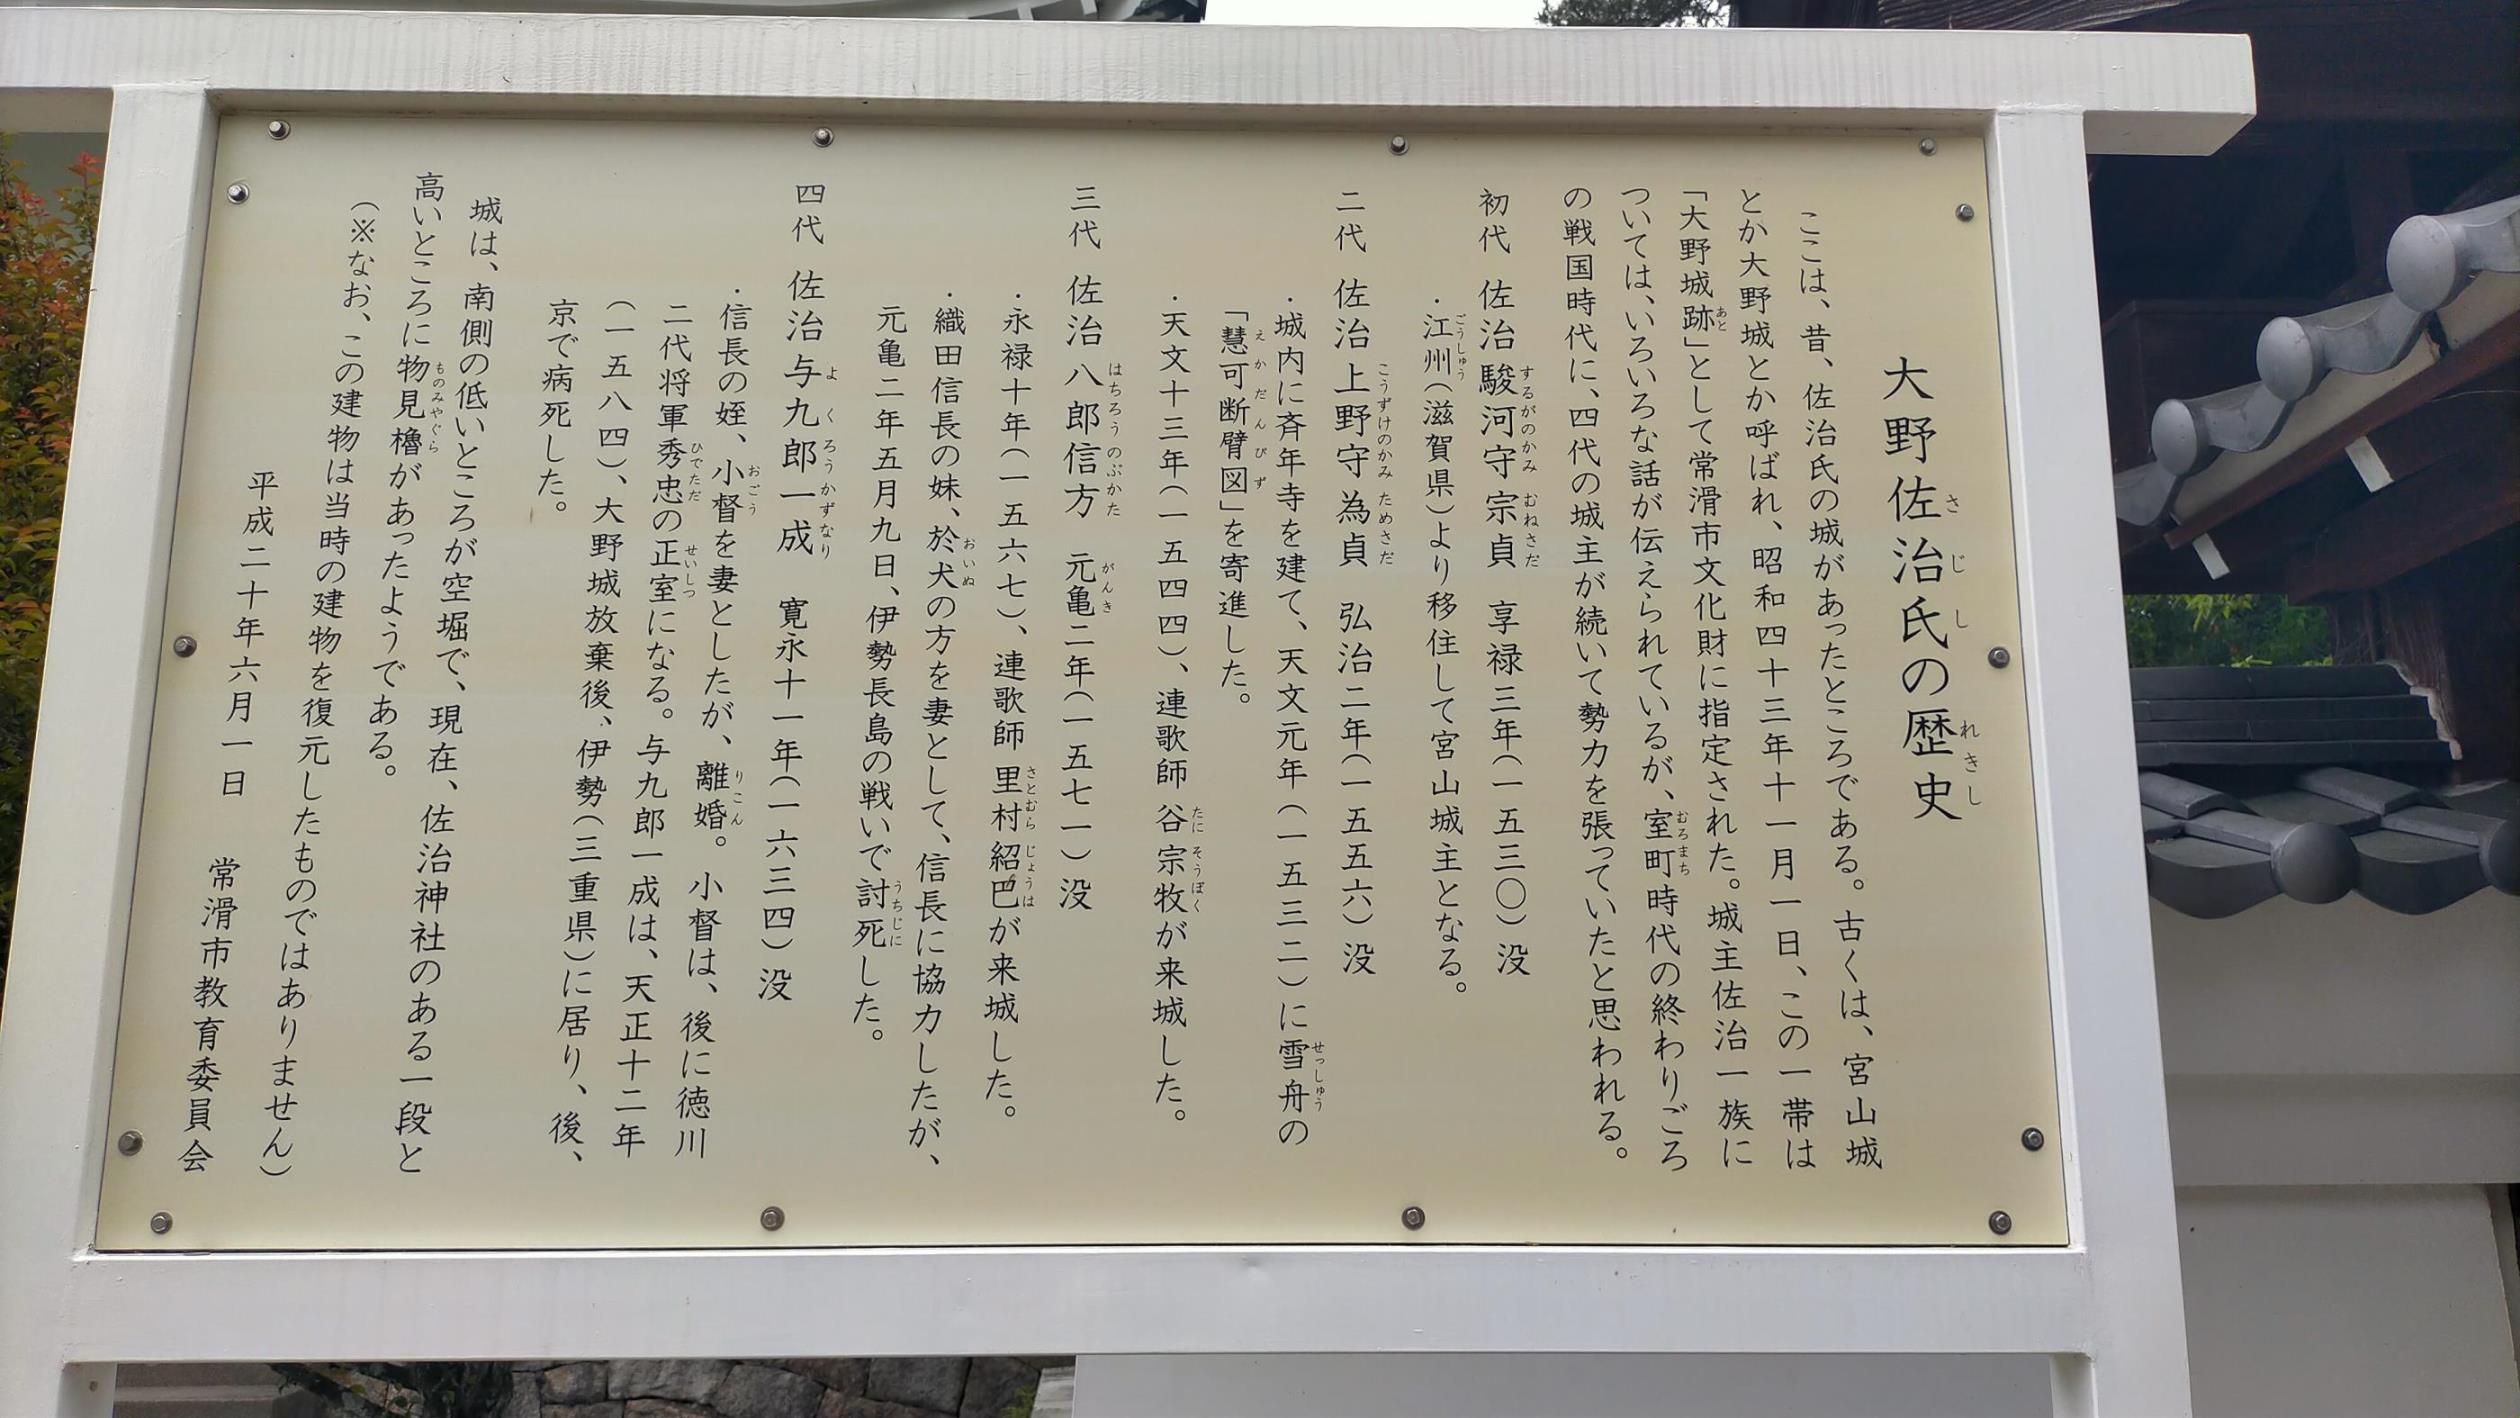 大野佐治氏の歴史
ここは、昔、佐治氏の城があったところである。古くは、宮山城
とか大野城とか呼ばれ、昭和四十三年十一月一日、この一帯は
「大野城跡」として常滑市文化財に指定された。城主佐治一族に
ついては、いろいろな話が伝えられているが、室町時代の終わりごろ
の戦国時代に、四代の城主が続いて勢力を張っていたと思われる。
初代 佐治駿河守宗貞 享禄三年(一五三〇)没
・江州(滋賀県)より移住して宮山城主となる。
二代 佐治上野守為貞 弘治二年(一五五六)没
・城内に斉年寺を建て、天文元年(一五三二)に雪舟の
「慧可断臂図」を寄進した。
・天文十三年(一五四四)、連歌師 谷宗牧が来城した。
三代 佐治八郎信方 元亀二年(一五七一)没
・永禄十年(一五六七)、連歌師 里村紹巴が来城した。
・織田信長の妹、於犬の方を妻として、信長に協力したが、
元亀二年五月九日、伊勢長島の戦いで討死した。
四代 佐治与九郎一成 寛永十一年(一六三四)没
・信長の姪、小督を妻としたが、離婚。小督は、後に徳川
二代将軍秀忠の正室になる。与九郎一成は、天正十二年
(一五八四)、大野城放棄後、伊勢(三重県)に居り、後、
京で病死した。
城は、南側の低いところが空堀で、現在、佐治神社のある一段と
高いところに物見櫓があったようである。
(※なお、この建物は当時の建物を復元したものではありません)
平成二十年六月一日 常滑市教育委員会